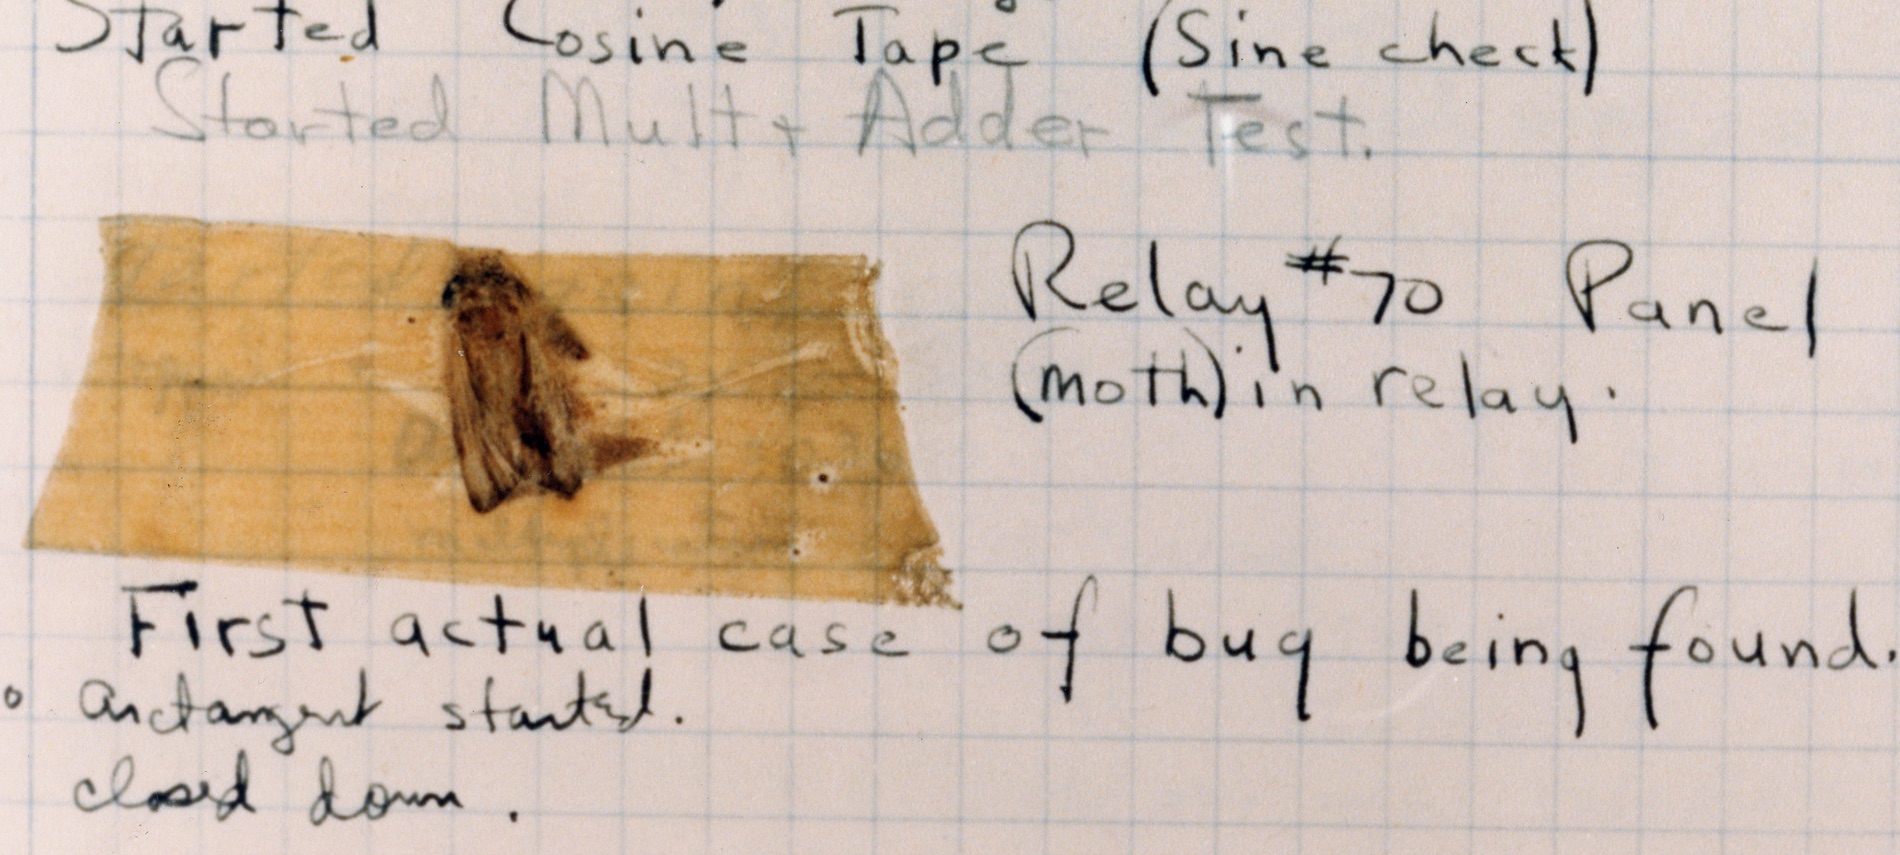 Started Cosine Tape (Sine check)
Started Mult + Adder Test.
Relay #70 Panel
(moth) in relay.
First actual case of bug being found.
arctangent started.
closed down.